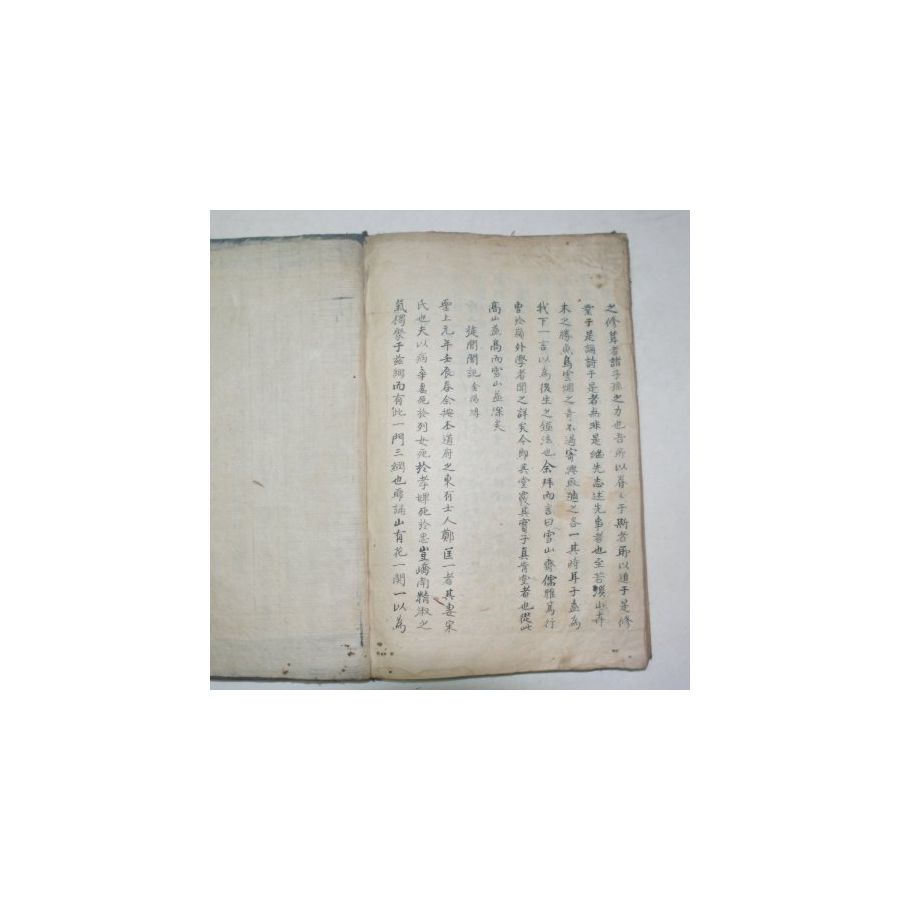 之修葺者諸子孫之力也吾所以眷々于斯者所以遊于是修
業于是誦詩于是者無非是繼先志述先事者也至若溪山卉
木之勝魚鳥雲烟之奇不過寄興取適之各一其時耳子盍為
我下一言以為後生之法也余拜而言曰雪山齋儒雅篤行
曺於嵎外學者聞之詳矣今即其堂其實子真肯堂者也從此
高山益高而雪山益深矣
旋閭閣記
聖上元年壬辰春余按本道府之東有士人鄭匡一者其妻宋
氏也夫以病卒妻死於列女死於孝婢死於忠豈嶠南精淑之
氣獨聚于茲網而有此一門三綱也再誦山有花一関一以為